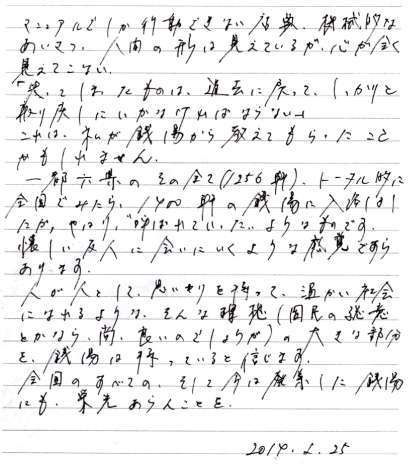 マニュアルでしか行動できない店員、機械的な
あいさつ、人間の形は見えているが、心が全く
見えてこない。
「失ってしまったものは、過去に戻って、しっかりと
取り戻しにいかなければならない」
これは、私が銭湯から教えてもらったこと
かもしれません。
一都六県のその全て(1256軒)、トータル的に
全国でみたら、1400軒の銭湯に入浴しまし
たが、やはり、"呼ばれていた"ようなものです。
懐しい友人に会いにいくような感覚ですら
あります。
人が人として、思いやりを持って、温かい社会
になれるような、そんな環境(国民の総意
とかなら、尚、良いのでしょうが)の大きな部分
を、銭湯は持っていると信じます。
全国のすべての、そして今は廃業した銭湯
にも、栄光あらんことを。
2014.2.25